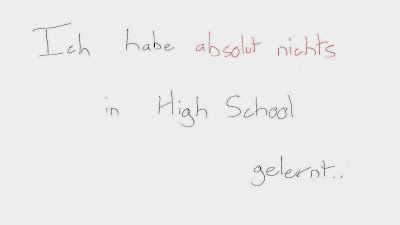 Ich habe absolut nichts
in High School
gelernt..